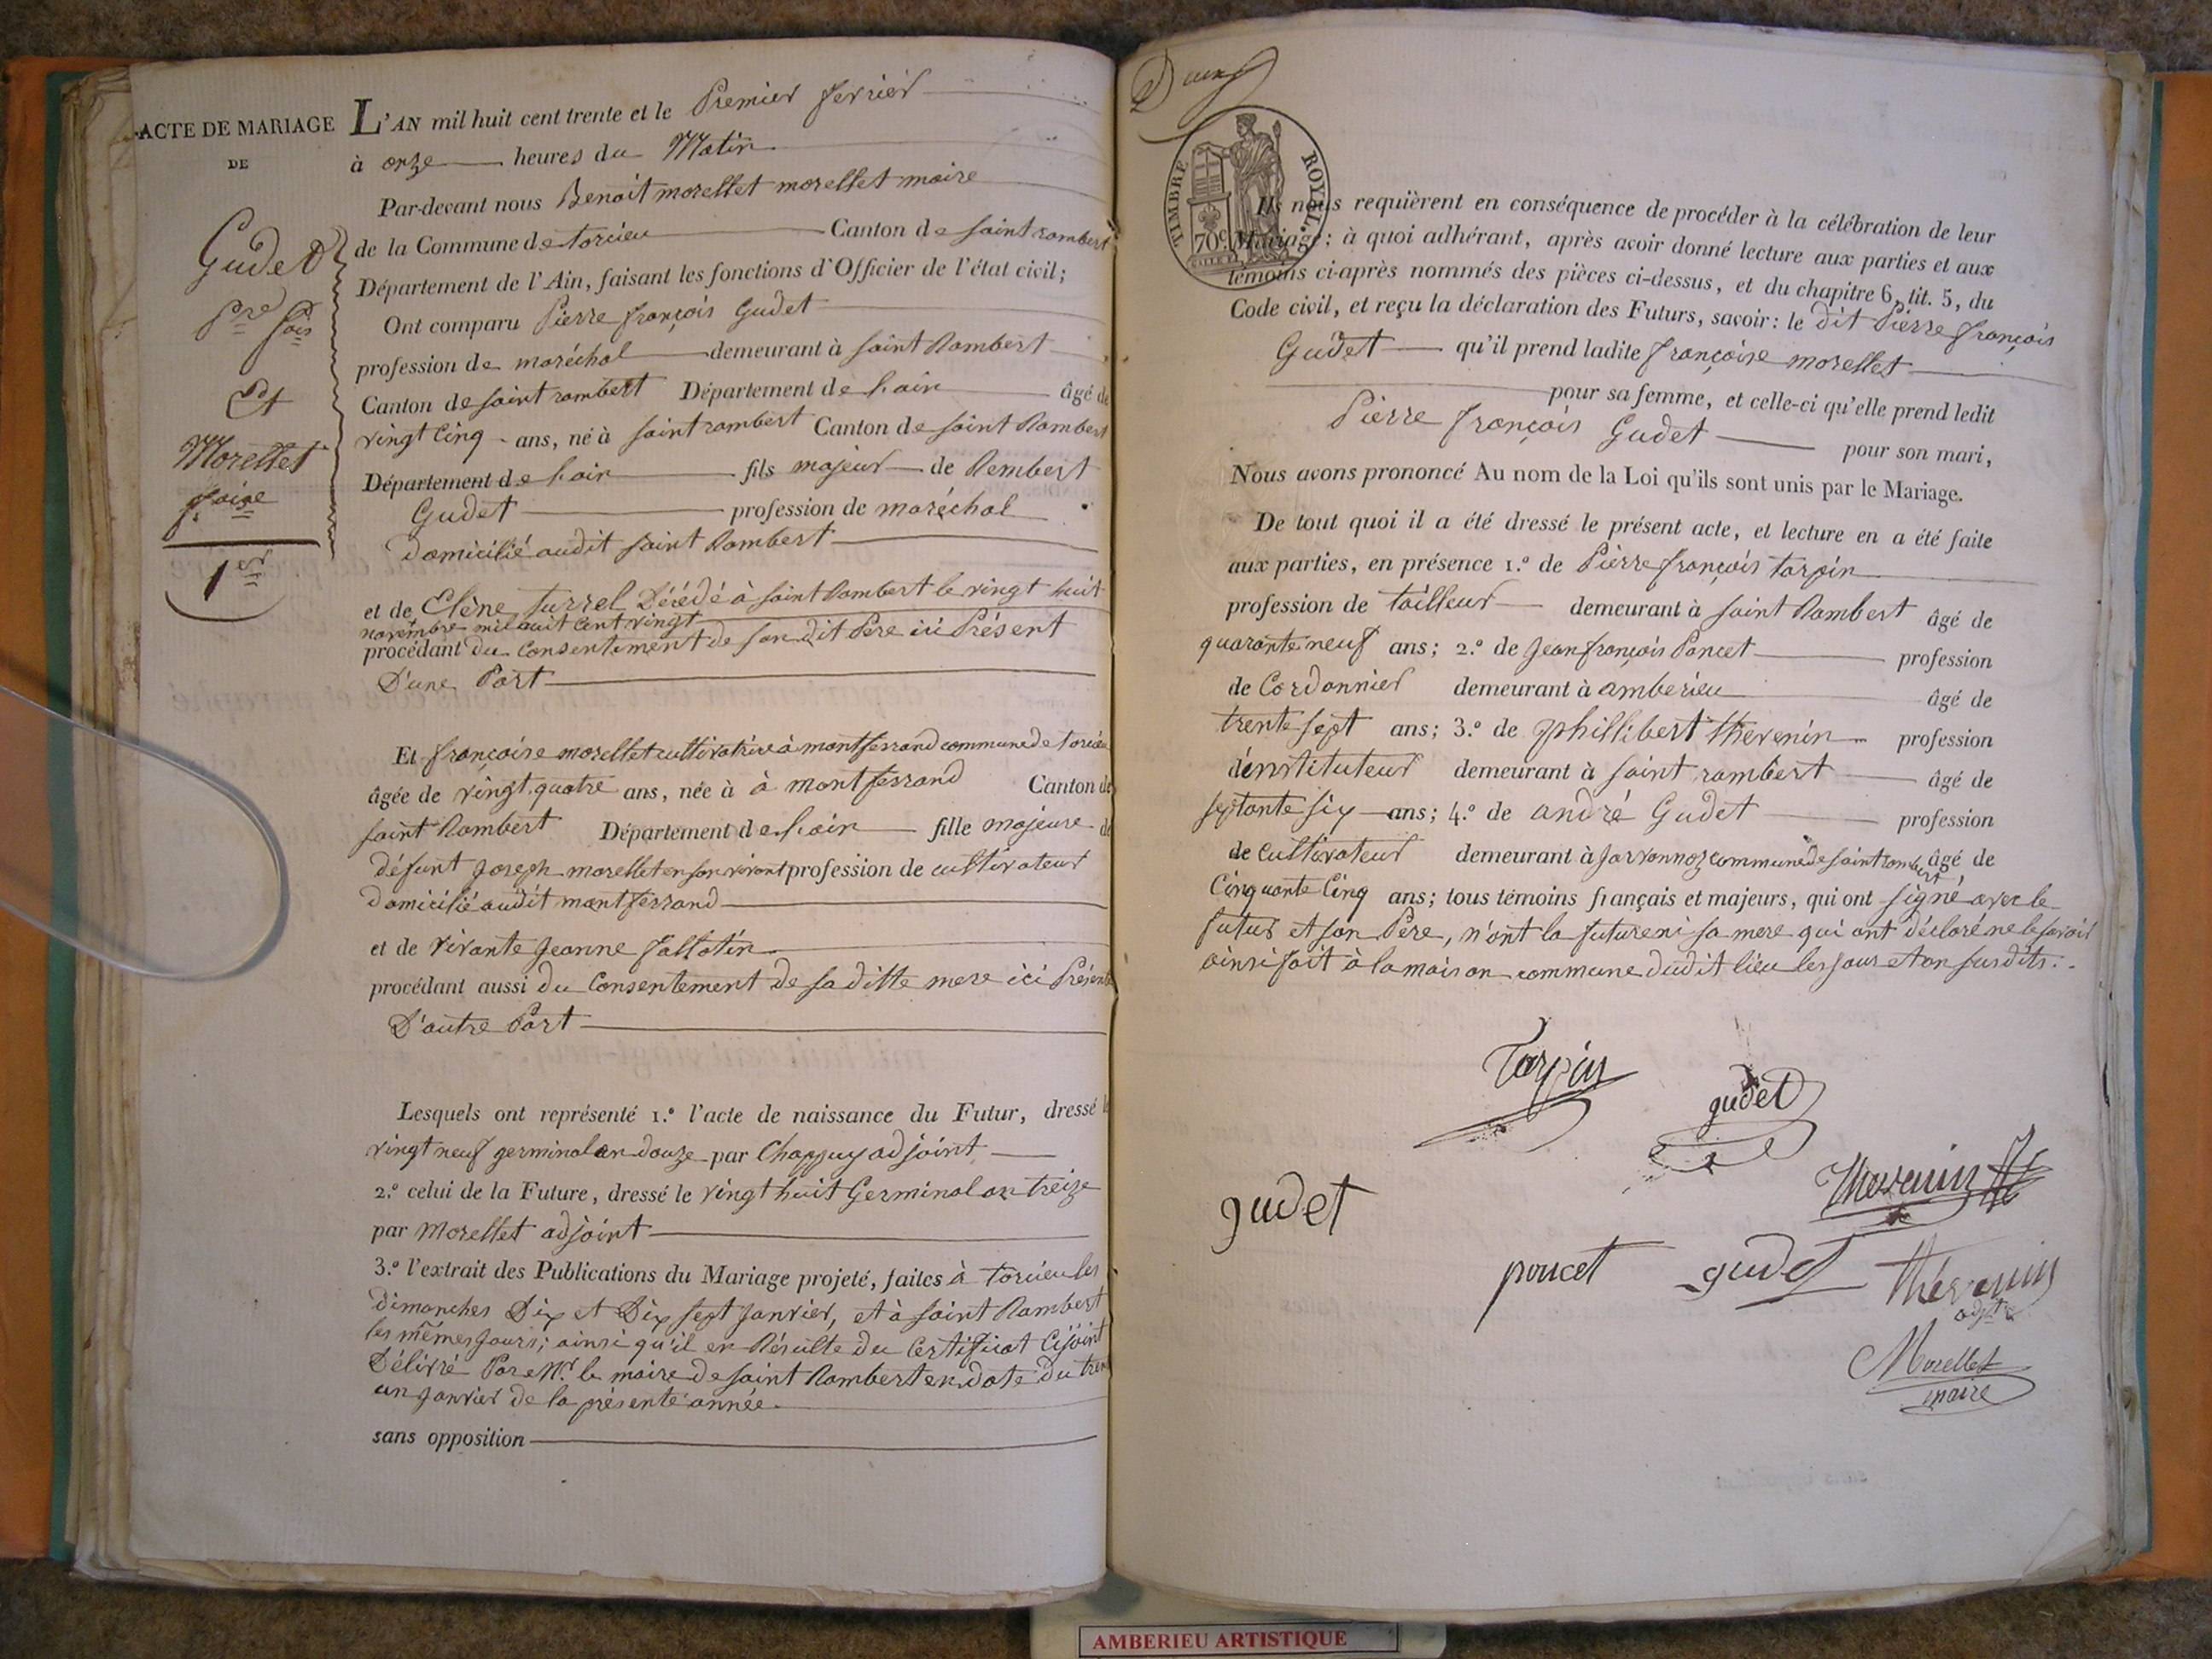 ACTE DE MARIAGE
DE
Gudet
Pre fois
et
Morellet
foise
1er
L'AN mil huit cent trente et le Premier fevrier
à onze heures du Matin
Par-devant nous Benoit morellet morellet maire
de la Commune de torcieu Canton de saint rambert
Département de l'Ain, faisant les fonctions d'Officier de l'état civil;
Ont comparu Pierre françois Gudet
profession de maréchal demeurant à saint Rambert
Canton de saint rambert Département de lain âgé de
vingt Cinq ans, né à saint rambert Canton de saint Rambert
Département de lain fils majeur de Rembert
Gudet profession de maréchal
domicilié audit saint Rambert
et de Elène surrel Décédé à saint Rambert le vingt huit
novembre mil huit Cent vingt
procédant du Consentement de son dit Pere ici Présent
D'une Part
Et françoise morellet cultivatrice à montferrand commune de torcieu
âgée de vingt quatre ans, née à à montferrand Canton de
saint Rambert Département de lain fille majeure de
défunt Joseph morellet en son vivant profession de cultivateur
domicilié audit montferrand
et de vivante Jeanne fallotin
procédant aussi du Consentement de sa ditte mere ici Présente
D'autre Part
Lesquels ont représenté 1.º l'acte de naissance du Futur, dressé le
vingt neuf germinal an douze par Chappuy adjoint
2.º celui de la Future, dressé le vingt huit Germinal an treize
par Morellet adjoint
3.º l'extrait des Publications du Mariage projeté, faites à torcieu les
dimanches Dix et Dix sept Janvier, et à saint Rambert
les mêmes jours; ainsi qu'il en Résulte du Certificat Cijoint
Délivré Par Mr. le maire de saint Rambert en date du trente
un Janvier de la présente année.
sans opposition
TIMBRE ROYAL
70c
Ils nous requièrent en conséquence de procéder à la célébration de leur
Mariage; à quoi adhérant, après avoir donné lecture aux parties et aux
témoins ci-après nommés des pièces ci-dessus, et du chapitre 6, tit. 5, du
Code civil, et reçu la déclaration des Futurs, savoir: le dit Pierre françois
Gudet qu'il prend ladite françoise morellet
pour sa femme, et celle-ci qu'elle prend ledit
Pierre françois Gudet pour son mari,
Nous avons prononcé Au nom de la Loi qu'ils sont unis par le Mariage.
De tout quoi il a été dressé le présent acte, et lecture en a été faite
aux parties, en présence 1.º de Pierre françois tarpin
profession de tailleur demeurant à saint Rambert âgé de
quarante neuf ans; 2.º de Jean françois Poncet profession
de Cordonnier demeurant à amberieu âgé de
trente sept ans; 3.º de phillibert thevenin profession
d'instituteur demeurant à saint rambert âgé de
septante six ans; 4.º de andré Gudet profession
de cultivateur demeurant à Javornoz commune de saint rambert âgé de
Cinquante Cinq ans; tous témoins français et majeurs, qui ont signé avec le
futur et son Pere, n'ont la future ni sa mere qui ont déclaré ne le savoir
ainsi fait à la maison commune dudit lieu les jour et an susdits.
Tarpin
gudet
Thevenin
gudet
poncet
gudet
thévenin
adjt
Morellet
maire
AMBERIEU ARTISTIQUE